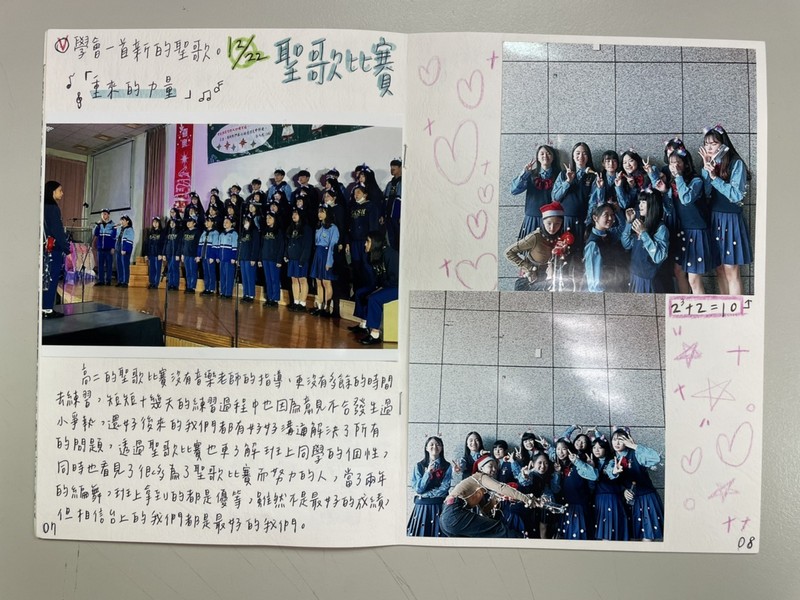 學會一首新的聖歌。
12/22
聖歌比賽
「重來的力量」
高二的聖歌比賽沒有音樂老師的指導,更沒有多餘的時間
去練習,短短十幾天的練習過程中也因為意見不合發生過
小爭執,還好後來的我們都有好好溝通解決了所有
的問題,透過聖歌比賽也更了解班上同學的個性,
同時也看見了很多為了聖歌比賽而努力的人,當了兩年
的編舞,班上拿到的都是優等,雖然不是最好的成績,
但相信台上的我們都是最好的我們。
07
2³+2=10
08